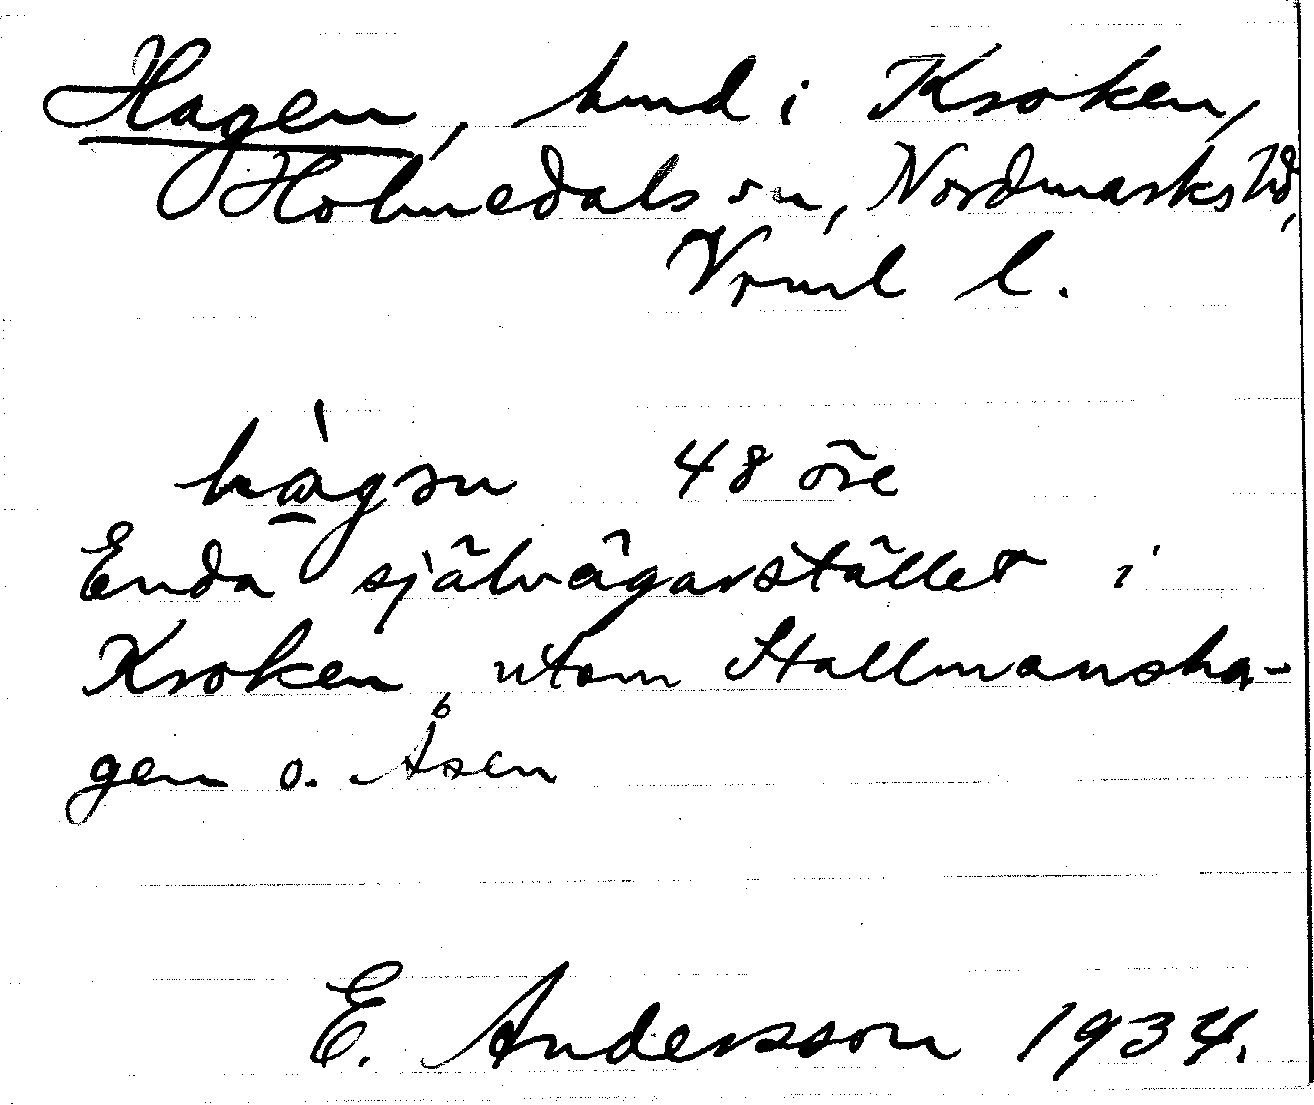 Hagen, hmd i Kroken,
Holmedals sn, Nordmarks hd,
Vrml l.
hàgən 48 öre
Enda självägarstället i
Kroken, utom Stallmansha-
gen o. Åsen
E. Andersson 1934.